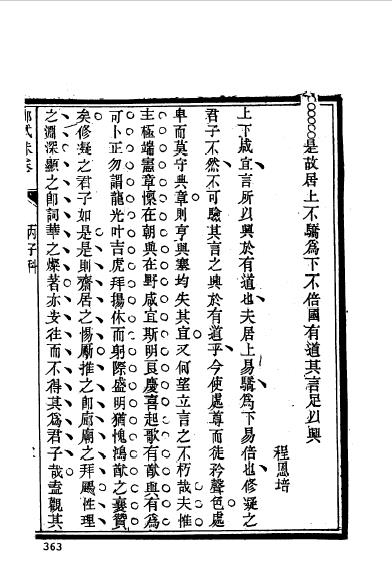 是故居上不驕為下不倍國有道其言足以興
程恩培
上下咸宜言所以興於有道也夫居上易驕為下易倍也修凝之
君子不然不可驗其言之興於有道乎今使處尊而徒矜聲色處
卑而莫守典章則亨與塞均失其宜又何望立言之不朽哉夫惟
主極端憲章懷在朝與在野咸宜斯明良慶喜起歌有猷與有為
可卜正勿謂龍光叶吉虎拜揚休而躬際盛明猶愧鴻猷之襄贊
矣修凝之君子如是是則齋居之惕厲推之卽廊廟之拜颺性理
之淵深顯之卽詞華之燦著亦安往而不得其為君子哉盍觀其
丙子科
363